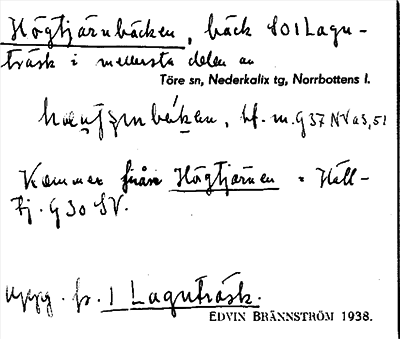 Högtjärnbäcken, bäck SO1Lagn-
träsk i mellersta delen av
Töre sn, Nederkalix tg, Norrbottens l.
bf. m. G37NVa3,51
Kommer från Högtjärnen
fj. G30 SV.
uppg. fr. 1 Lagnträsk.
EDVIN BRÄNNSTRÖM 1938.